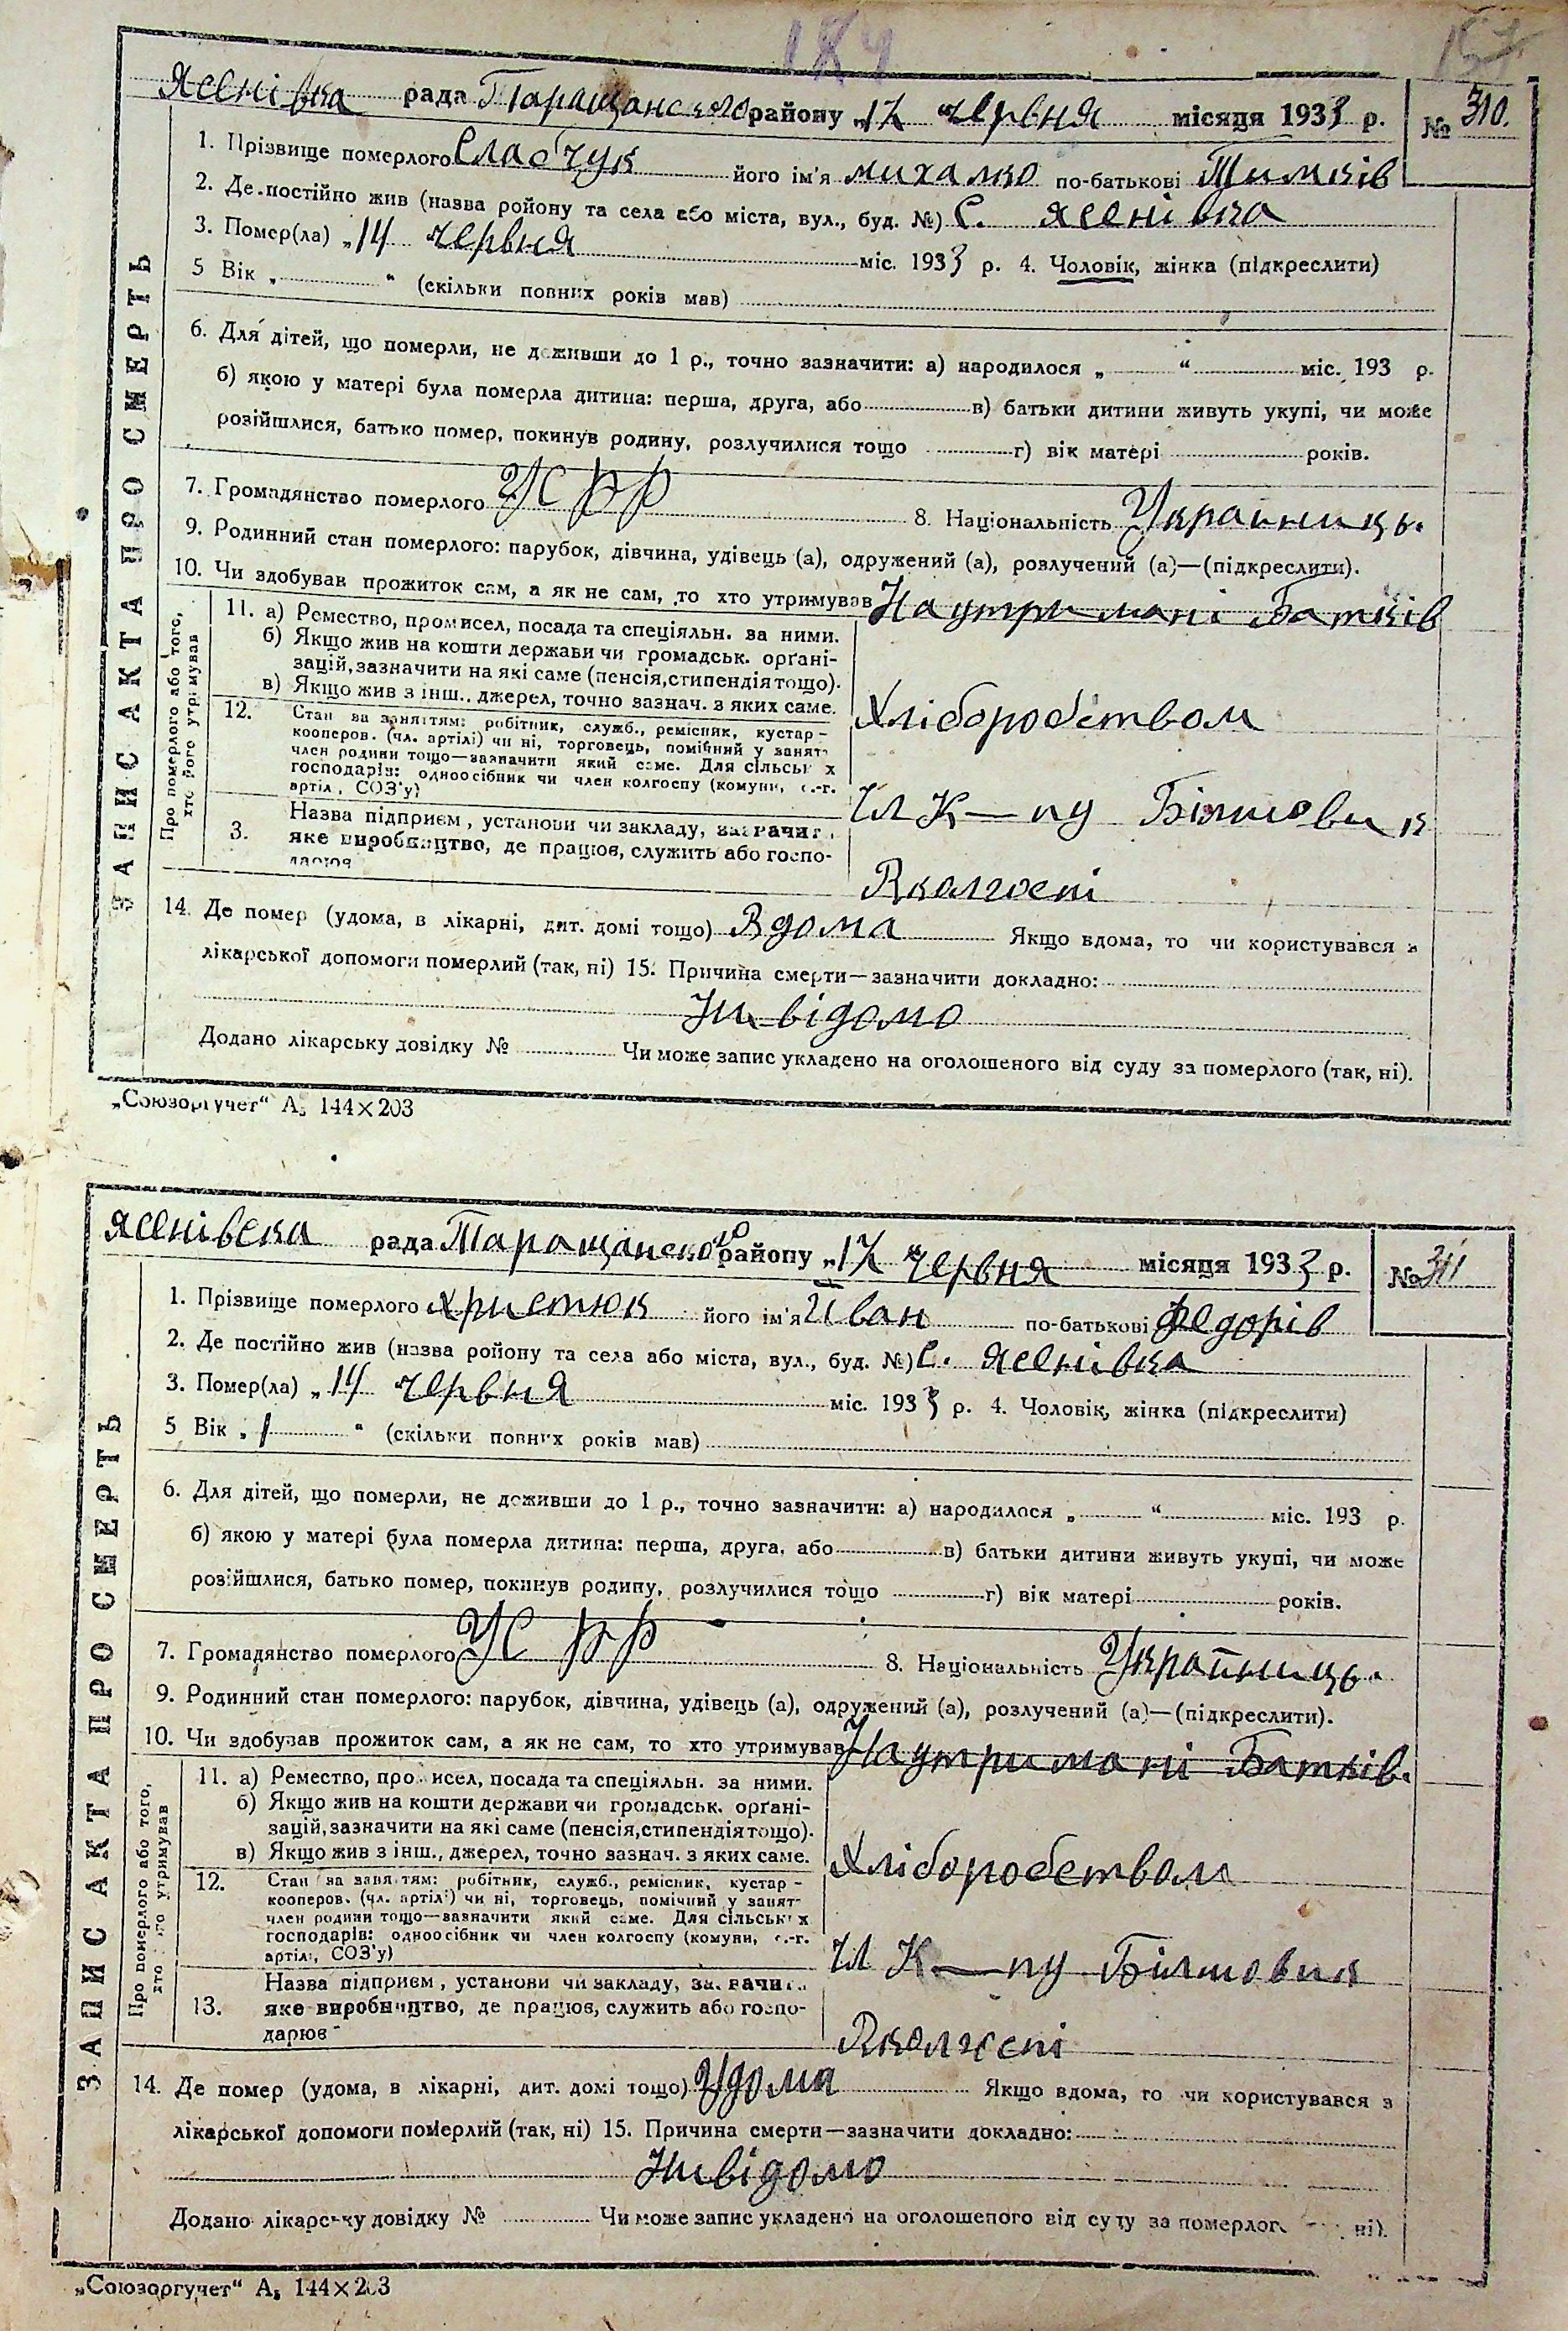 184 157
Ясенівка рада Таращанського району „17 червня місяця 1933 р. № 310.
1. Прізвище померлого Сласчук його ім'я михалко по-батькові Тимків
2. Де постійно жив (назва ройону та села або міста, вул., буд. №) С. ясенівка
3. Помер(ла) „14 червня міс. 1933 р. 4. Чоловік, жінка (підкреслити)
5 Вік „ “ (скільки повних років мав)
6. Для дітей, що померли, не доживши до 1 р., точно зазначити: а) народилося „ “ міс. 193 р.
б) якою у матері була померла дитина: перша, друга, або в) батьки дитини живуть укупі, чи може
розійшлися, батько помер, покинув родину, розлучилися тощо г) вік матері років.
7. Громадянство померлого УСРР 8. Національність Українець.
9. Родинний стан померлого: парубок, дівчина, удівець (а), одружений (а), розлучений (а)—(підкреслити).
10. Чи здобував прожиток сам, а як не сам, то хто утримував На утримані Батків
11. а) Ремество, промисел, посада та спеціяльн. за ними.
б) Якщо жив на кошти держави чи громадськ. орґані-
зацій, зазначити на які саме (пенсія, стипендія тощо).
в) Якщо жив з інш., джерел, точно зазнач. з яких саме.
Хліборобством
12. Стан за заняттям: робітник, служб., ремісник, кустар -
кооперов. (чл. артілі) чи ні, торговець, помічний у занят-
член родини тощо—зазначити який саме. Для сільськ х
господарів: одноосібник чи член колгоспу (комуни, с.-г.
артіл, СОЗ'у)
Чл К—пу Більшовик
3. Назва підприєм, установи чи закладу, зазначит
яке виробництво, де працюв, служить або госпо-
дарює
Вколгоспі
14. Де помер (удома, в лікарні, дит. домі тощо) Вдома Якщо вдома, то чи користувався з
лікарської допомоги померлий (так, ні) 15. Причина смерти—зазначити докладно:
Ни відомо
Додано лікарську довідку № Чи може запис укладено на оголошеного від суду за померлого (так, ні).
ЗАПИС АКТА ПРО СМЕРТЬ
Про померлого або того, хто його утримував
„Союзоргучет“ А5 144×203
Ясенівска рада Таращанського району „17 червня місяця 1933 р. № 311
1. Прізвище померлого Христюк його ім'я Іван по-батькові Федорів
2. Де постійно жив (назва ройону та села або міста, вул., буд. №) С. Ясенівка
3. Помер(ла) „14 червня міс. 1933 р. 4. Чоловік, жінка (підкреслити)
5 Вік „1 “ (скільки повних років мав)
6. Для дітей, що померли, не доживши до 1 р., точно зазначити: а) народилося „ “ міс. 193 р.
б) якою у матері була померла дитина: перша, друга, або в) батьки дитини живуть укупі, чи може
розійшлися, батько помер, покинув родину, розлучилися тощо г) вік матері років.
7. Громадянство померлого УСРР 8. Національність Українець.
9. Родинний стан померлого: парубок, дівчина, удівець (а), одружений (а), розлучений (а)—(підкреслити).
10. Чи здобував прожиток сам, а як не сам, то хто утримував На утримані Батків.
11. а) Ремество, промисел, посада та спеціяльн. за ними.
б) Якщо жив на кошти держави чи громадськ. орґані-
зацій, зазначити на які саме (пенсія, стипендія тощо).
в) Якщо жив з інш., джерел, точно зазнач. з яких саме.
Хліборобством
12. Стан за заняттям: робітник, служб., ремісник, кустар -
кооперов. (чл. артілі) чи ні, торговець, помічний у занят-
член родини тощо—зазначити який саме. Для сільськ х
господарів: одноосібник чи член колгоспу (комуни, с.-г.
артілі, СОЗ'у)
Чл К—пу Більшовик
13. Назва підприєм, установи чи закладу, зазначит
яке виробництво, де працюв, служить або госпо-
дарює
Вколгоспі
14. Де помер (удома, в лікарні, дит. домі тощо) Удома Якщо вдома, то чи користувався з
лікарської допомоги померлий (так, ні) 15. Причина смерти—зазначити докладно:
Нивідомо
Додано лікарську довідку № Чи може запис укладено на оголошеного від суду за померлог ні).
ЗАПИС АКТА ПРО СМЕРТЬ
Про померлого або того, хто його утримував
„Союзоргучет“ А5 144×203